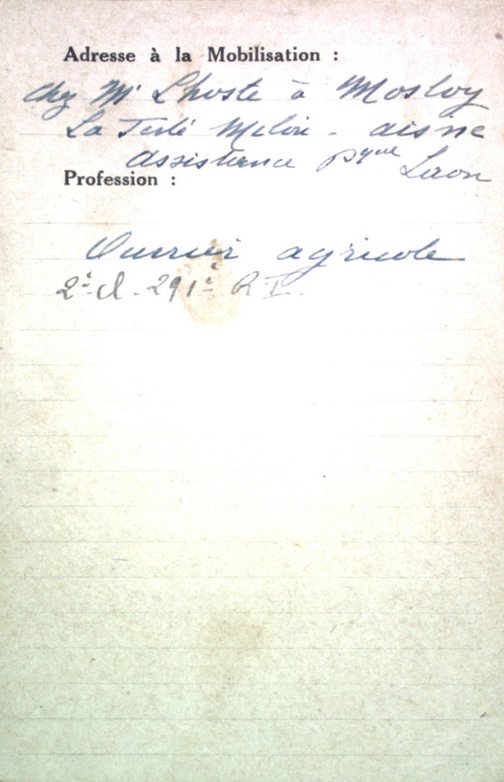 Adresse à la Mobilisation :
chez Mr Lhoste à Mosloy
La Ferté Milon - aisne
assistance pque Laon
Profession :
Ouvrier agricole
2e cl. 291e R I.